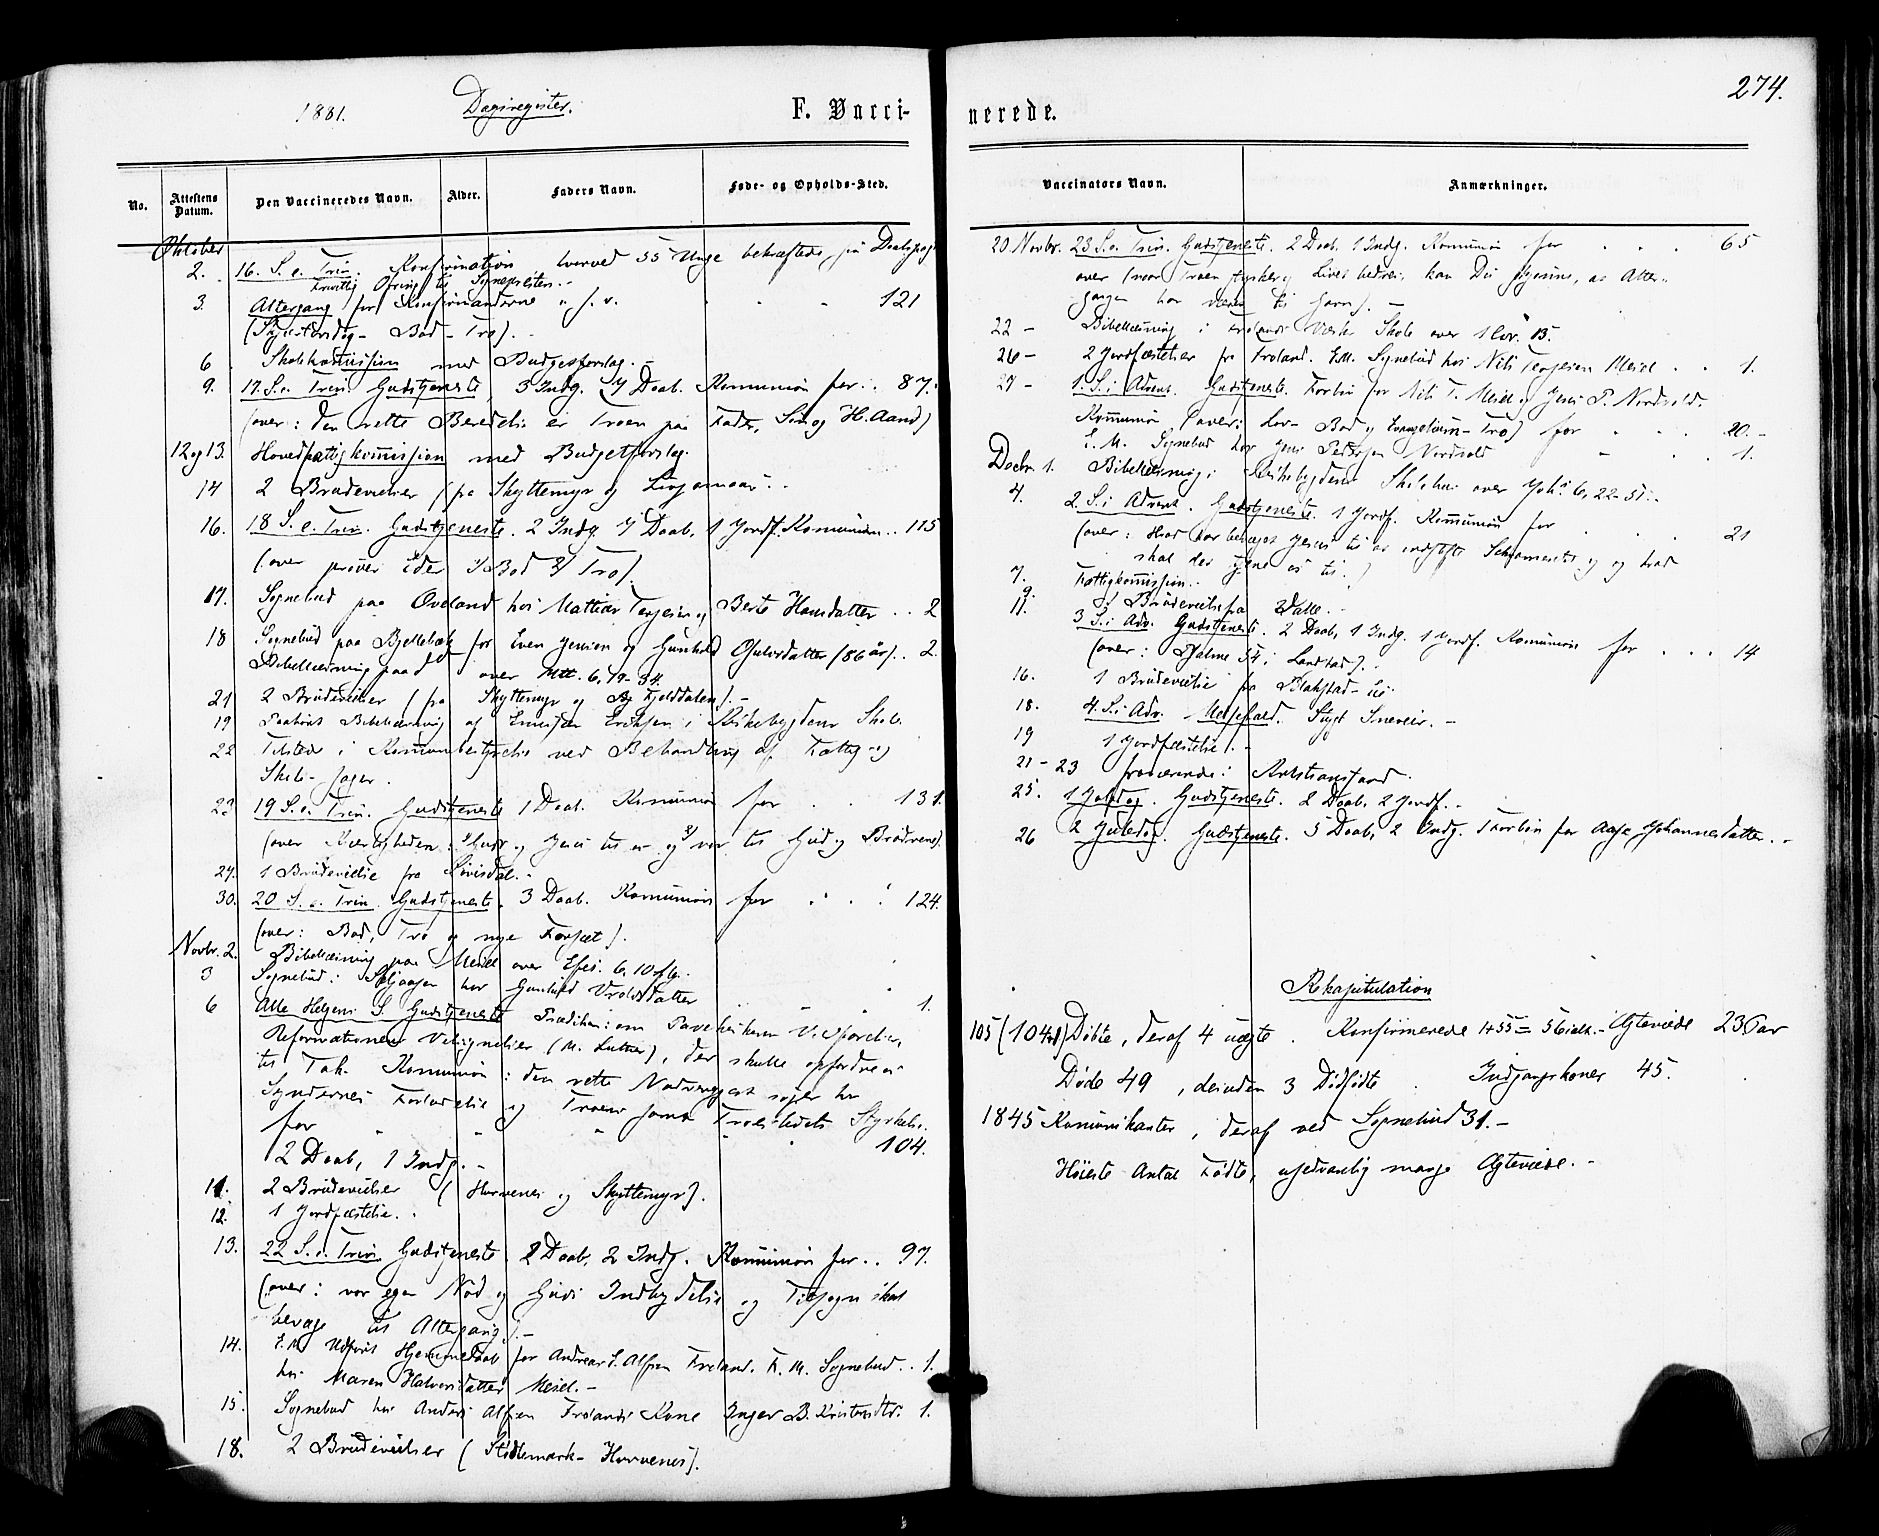 1881. Dagsregister. F. Vacci-
No. Attestens Datum. Den Vaccineredes Navn. Alder. Faders Navn. Føde- og Opholds-Sted.
Oktober
2. 16. S. e. Trin. Konfirmation hvorved 55 Unge bekræftede sin Daabspagt
Frivillig Ofring til Sognepresten.-
3. Altergang for Konfirmanderne o. f. v. - 121
(Skriftetale - Bod - Tro).
6. Skolekommission med Budgetforslag.-
9. 17. S. e. Trin. Gudstjeneste, 5 Indg. 7 Daab. Kommunion for . . 87.
(over: den rette Beredelse er Troen paa Fader, Søn og H. Aand)
12 og 13. Hovedfattigkommission med Budgetforslag.
14 2 Brudevielser (fra Skyttemyr og
16. 18 S. e. Trin. Gudstjeneste. 2 Indg. 7 Daab, 1 Jordf. Kommunion . . 115
(over prøver Eder 1/ Bod 2/ Tro).
17. Sognebud paa Øveland hos Mathias Terjesen og Berte Hansdatter . . 2
18 Sognebud paa Bjellebæk for Even Jensen og Gunhild Gulovsdatter (86 år) . . 2.
Bibellæsning paa do over Mtt. 6, 19-34.
21 2 Brudevielser (fra Skyttemyr og Fjelddalen).-
19 Paahørt Bibellæsning af Emissær Eriksen i Kirkebygdens Skole.
22 Tilstede i Kommunbestyrelse ved Behandling af Fattig- og
Skole-Sager.
23 19 S. e. Trin. Gudstjeneste 1 Daab. Kommunion for . . 131.
(over Kjærligheden: 1/ Guds og Jesu til os og 2/ vor til Gud og Brødrene).
27. 1 Brudevielse fra Livisdal.-
30. 20 S. e. Trin. Gudstjeneste. 3 Daab. Kommunion for . . . 124.
(over: Bod, Tro og nye Forsæt).
Novbr. 2. Bibellæsning paa Mesel over Efes. 6, 10 flg.
3 Sognebud i hos Gunhild Vraalsdatter 1.
6 Alle Helgens S. Gudstjeneste Prædiken: om Pavekirkens Vi
Reformationens Velsignelser (M. Luther), der skulle opfordre os
til Tak. Kommunion: den rette Nadvergjæst søger her
Syndernes Forladelse og Troens samt Troeslivets Styrkelse.
for " " " " 104.
2 Daab, 1 Indg.-
11. 2 Brudevielser (Hurvenes og Skyttemyr).
12. 1 Jordfæstelse.
13. 22 S. e. Trin Gudstjeneste. 2 Daab, 2 Indg. Kommunion for . . 97.
(over: vor egen Nød og Guds Indbydelse og Tilsagn skal
bevæge til Altergang).-
14. F. M. Udført Hjemmedaab for Andreas S. Alfsen Froland. E. M. Sognebud . . 1.
hos Maren Halvorsdatter Mesel.-
15. Sognebud hos Anders Alfsen Frolands Kone Inger B. Kristensdtr. 1.
18. 2 Brudevielser (Stødlemark - Hurvenes).
274.
nerede.
Vaccinators Navn. Anmærkninger.
20 Novbr. 23 S. e. Trin. Gudstjeneste. 2 Daab. 1 Indg. Kommunion for . . . 65
over (naar Troen styrkes og Livet bedres, kan Du skjønne, at Alter-
gangen har været til Gavn).-
22 - Bibellæsning i Frolands Værks Skole over 1 Cor. 13.
26 - 2 Jordfæstelser fra Froland. E.M. Sognebud hos Nils Terjesen Mesel . . 1.
27 - 1. S. i Advent. Gudstjeneste. Forbøn for Nils T. Mesel og Jens P. Nordvold.
Kommunion (over: Lov - Bod og Evangelium - Tro) for . . . 20.-
E. M. Sognebud hos Jens Pedersen Nordvold - . . 1.
Decbr. 1. Bibellæsning i Kirkebygdens Skolehus over Joh. 6, 22-51.-
4. 2. S. i Advent. Gudstjeneste. 1 Jordf. Kommunion for . . . 21
(over: Hvad har bevæget Jesus til at indstifte Sakramentet og og hvad
skal det tjene os til.)
7. Fattigkommission.-
9. 1 Brudevielse fra Dalle.-
11. 3 S. i Adv. Gudstjeneste. 2 Daab, 1 Indg. 1 Jordf. Kommunion for . . . 14
(over: Psalme 54 i Landstad).-
16. 1 Brudevielse fra Blakstad-
18. 4. S. i Adv. Messefald. Stygt Sneveir.-
19 1 Jordfæstelse.-
21 - 23 fraværende i Kristianssand.
25. 1 Juledag. Gudstjeneste. 2 Daab, 2 Jordf.-
26 2 Juledag. Gudstjeneste. 5 Daab, 2 Indg. Forbøn for Aase Johannesdatter.-
Rekapitulation
105 (104) Døbte, deraf 4 uægte. Konfirmerede 1+55 = 56 Egteviede 23 Par
Døde 49, desuden 3 Dødfødte. Indgangskoner 45.
1845 Kommunikanter, deraf ved Sognebud 31.-
Høieste Antal Fødte, usedvanlig mange Egteviede.-